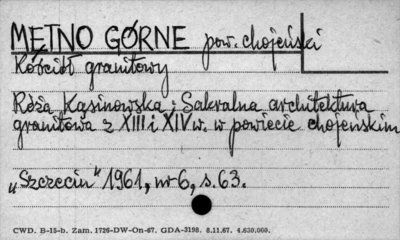 MĘTNO GÓRNE pow. chojeński
Kościół granitowy
Róża Kąsinowska: Sakralna architektura
granitowa z XIII i XIV w. w powiecie chojeńskim
„Szczecin" 1961, nr 6, s. 63.
CWD. B-15-b. Zam. 1726-DW-On-67. GDA-3198. 8.11.67. 4.630.000.